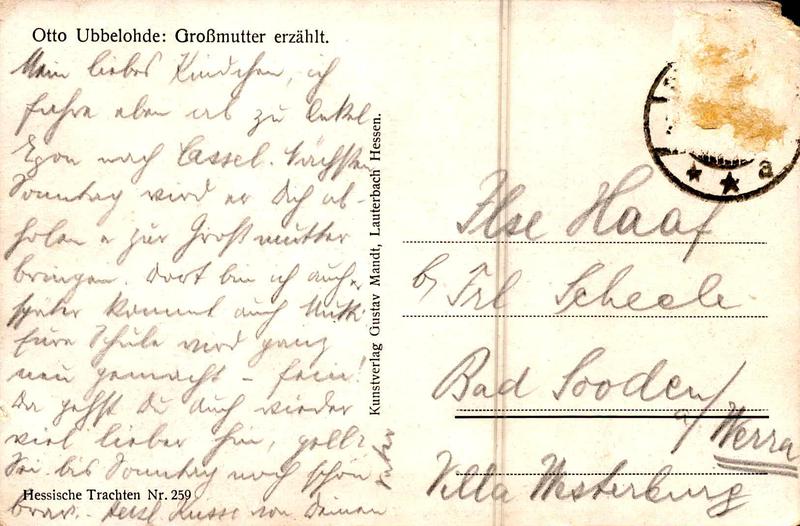 Otto Ubbelohde: Großmutter erzählt.
Mein liebes Kindchen, ich
fahre eben ab zu Onkel
Egon nach Cassel. Nächsten
Sonntag wird er Dich ab-
holen u zur Großmutter
bringen. Dort bin ich auch,
später kommt auch Mutti.
Eure Schule wird ganz
neu gemacht - fein!
Da gehst Du auch wieder
viel lieber hin, gellt
Sei bis Sonntag noch schön
brav. Herzl. Küsse von Deinem
Vater
Hessische Trachten Nr. 259
Kunstverlag Gustav Mandt, Lauterbach Hessen.
a
Ilse Haaf
b/ Frl Scheele
Bad Sooden
a/Werra
Villa Westerburg